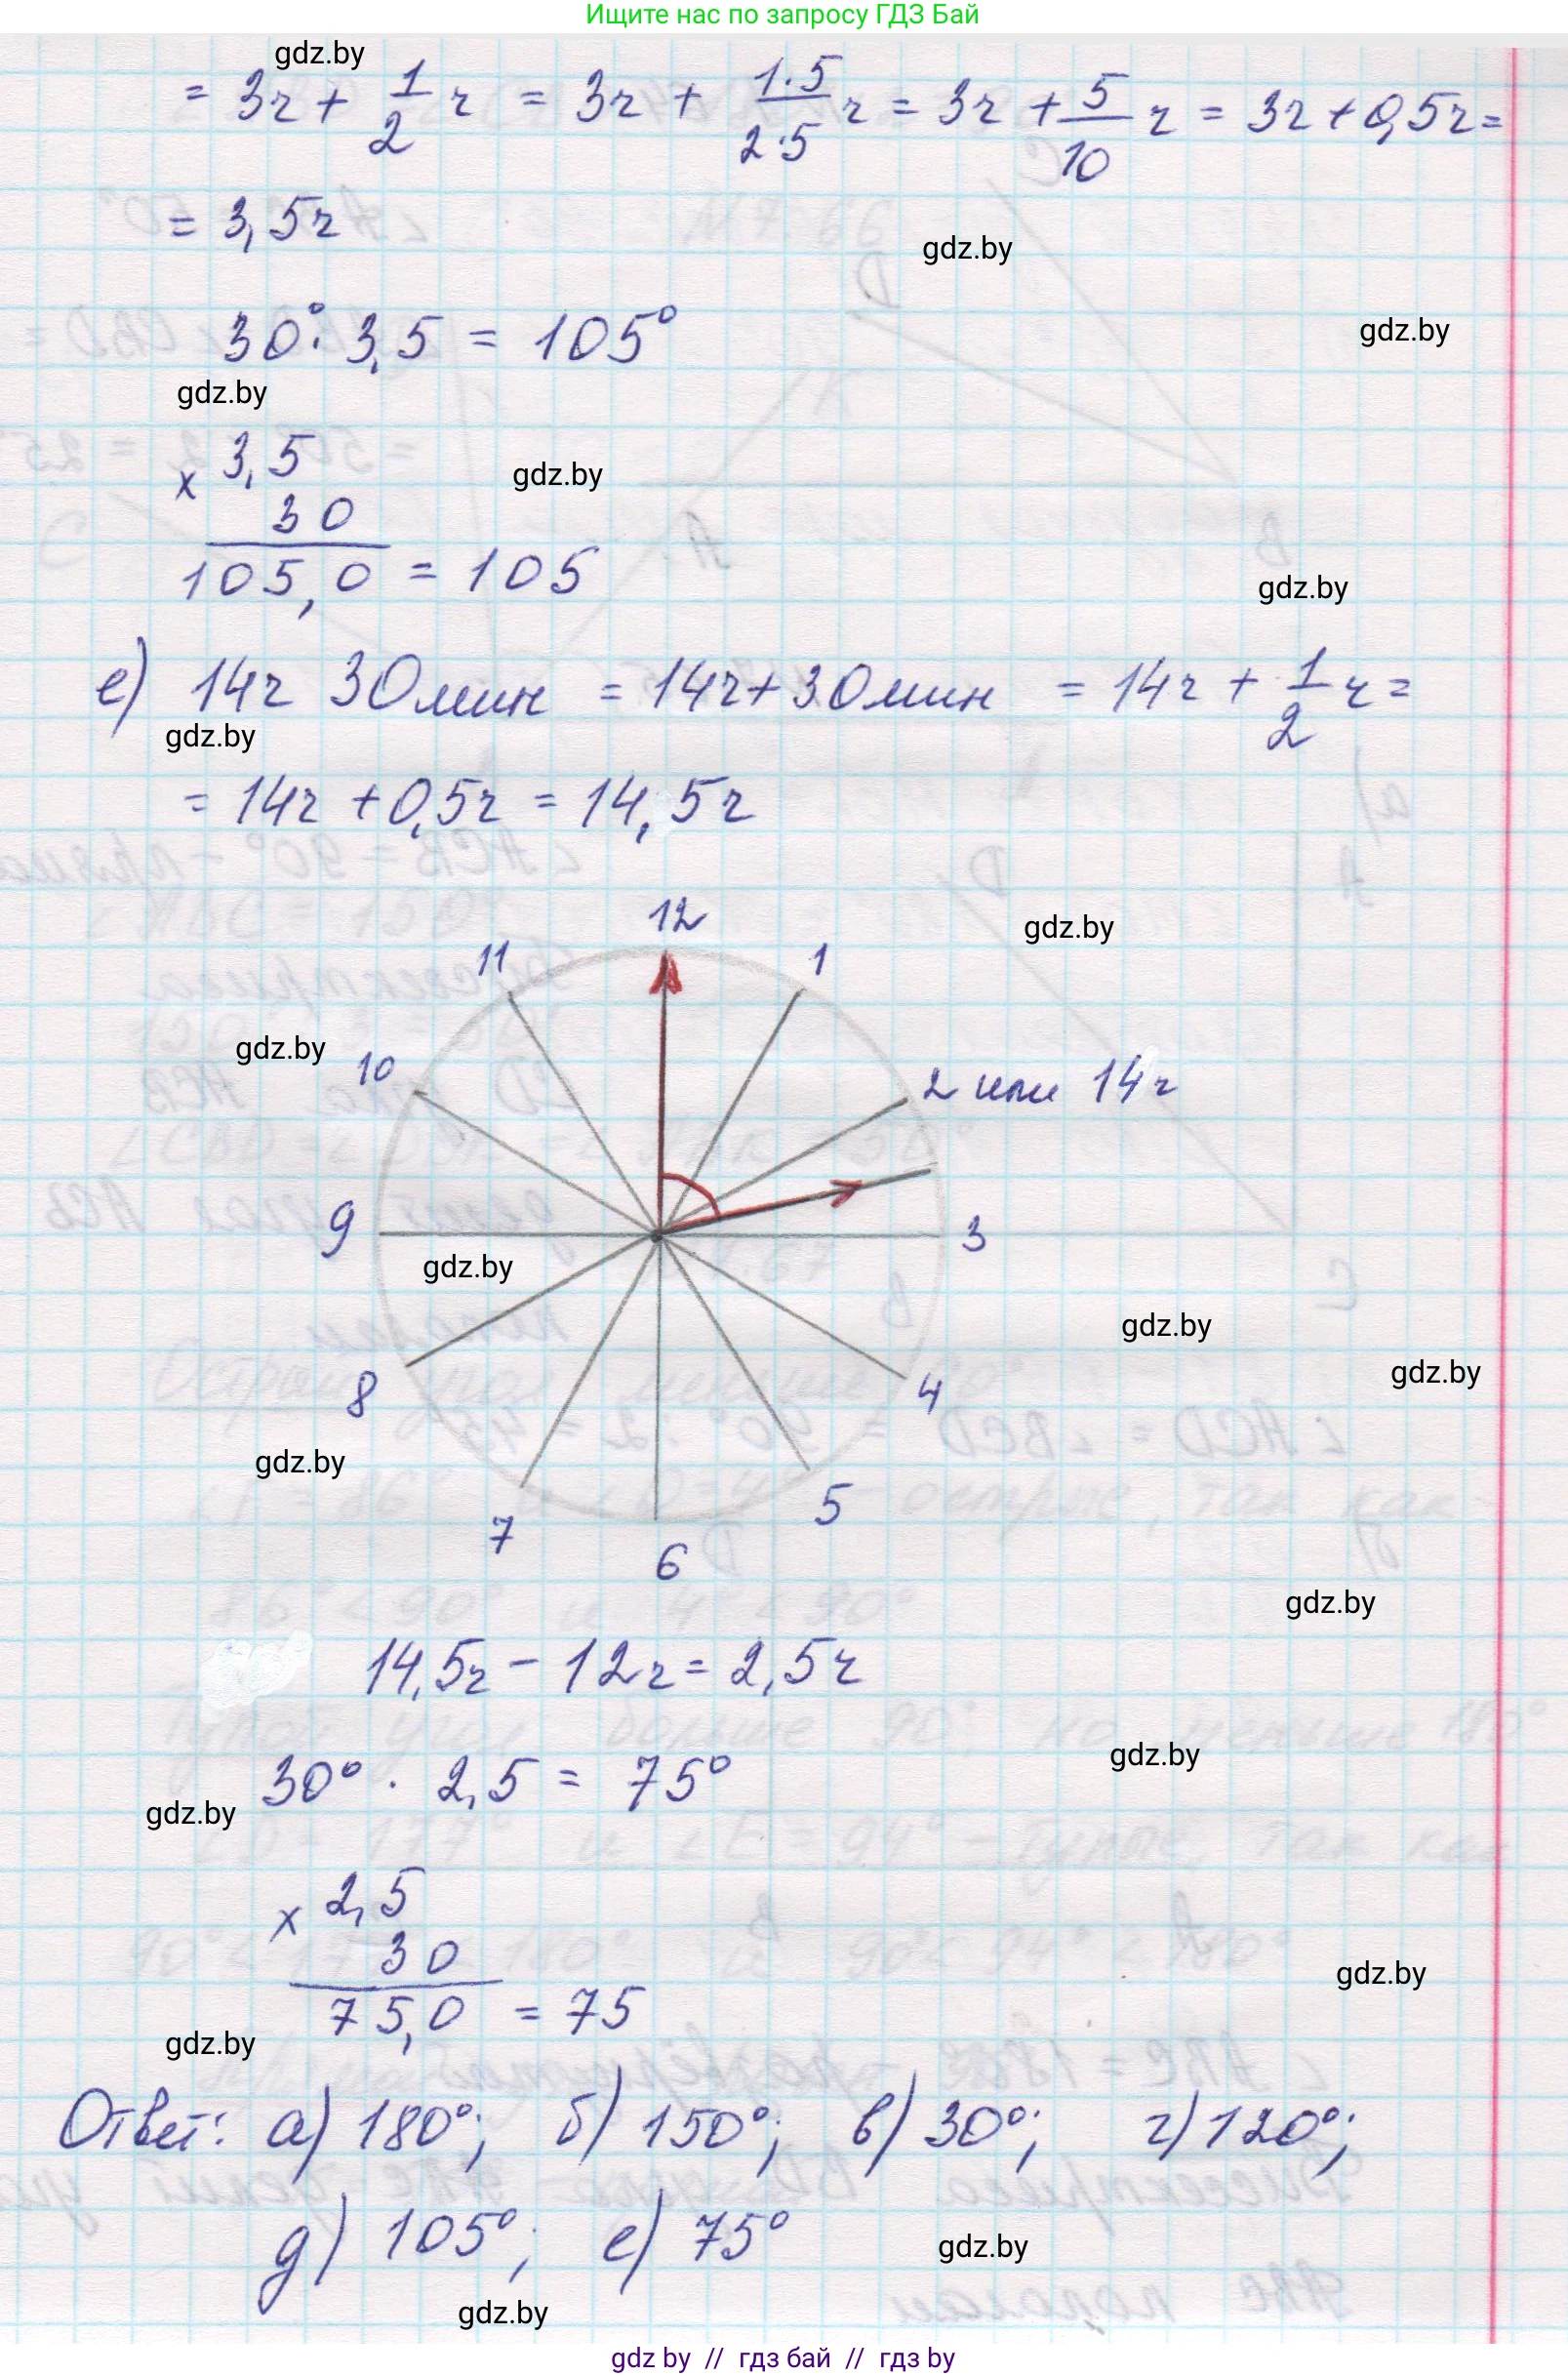 Ищите нас по запросу ГДЗ Бай
gdz.by
= 3ч + 1/2 ч = 3ч + 1·5/2·5 ч = 3ч + 5/10 ч = 3ч + 0,5ч =
= 3,5ч
gdz.by
gdz.by
30° · 3,5 = 105°
gdz.by
× 3,5
gdz.by
30
105,0 = 105
gdz.by
е) 14ч 30мин = 14ч + 30мин = 14ч + 1/2 ч =
gdz.by
= 14ч + 0,5ч = 14,5ч
12
gdz.by
11
1
gdz.by
10
2 или 14ч
9
3
gdz.by
gdz.by
gdz.by
8
4
gdz.by
7
5
6
gdz.by
14,5ч - 12ч = 2,5ч
gdz.by
30° · 2,5 = 75°
gdz.by
× 2,5
30
gdz.by
75,0 = 75
gdz.by
Ответ: а) 180°; б) 150°; в) 30°; г) 120°;
д) 105°; е) 75°
gdz.by
gdz.by
gdz.by // гдз бай // гдз by